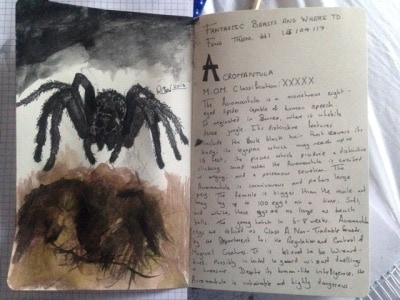 Fantastic Beasts and Where to
Find Them.
2014
Acromantula
M.O.M. Classification: XXXXX
The Acromantula is a monstrous eight-
eyed spider capable of human speech.
It originated in Borneo, where it inhabits
dense jungle. Its distinctive features
include the thick black hair that covers its
body; its legspan, which may reach up to
15 feet; its pincers which produce a distinctive
clicking sound when the Acromantula is excited
or angry; and a poisonous secretion. The
Acromantula is carnivorous and prefers large
prey. The female is bigger than the male and
may lay up to 100 eggs at a time. Soft
and white, these eggs are as large as beach
balls. The young hatch in 6-8 weeks. Acromantula
eggs are defined as Class A Non-Tradeable Goods
by the Department for the Regulation and Control of
Magical Creatures. It is believed to be Wizard-
bred, possibly intended to guard wizard dwellings
or treasure. Despite its human-like intelligence, the
Acromantula is untrainable and highly dangerous